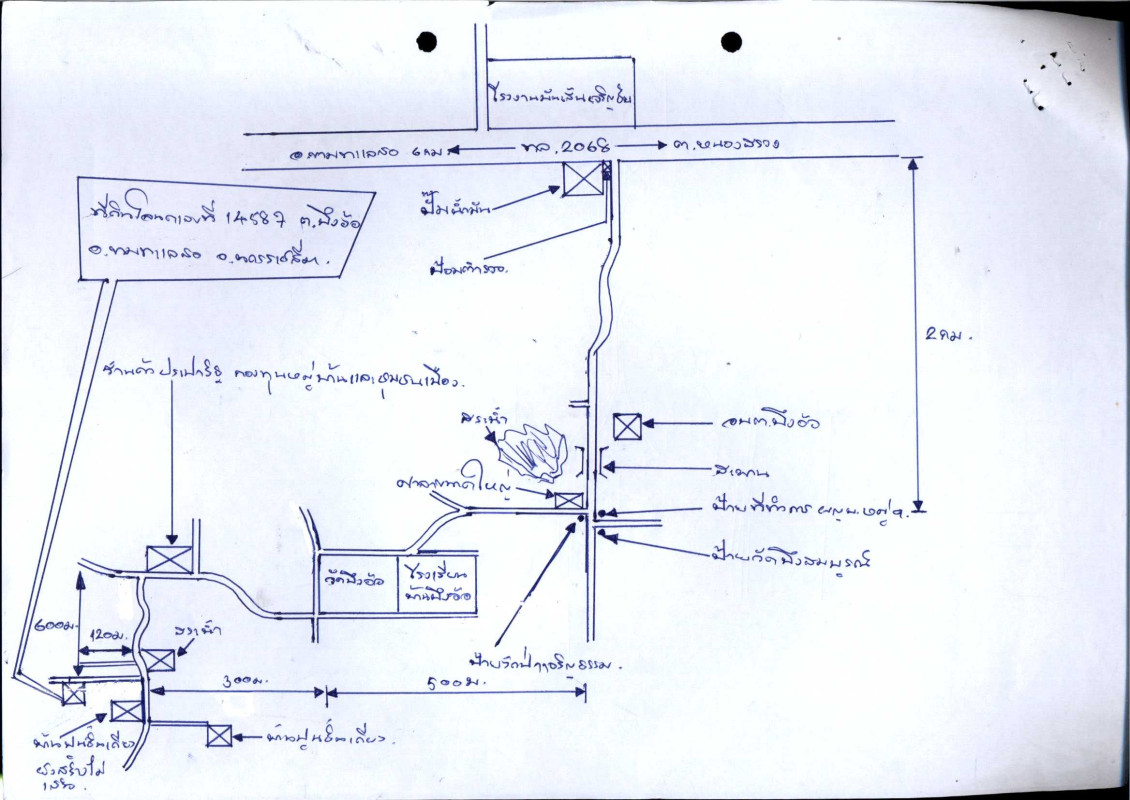 โรงงานมันเส้นเจริญชัย
อ.ขามทะเลสอ 6 กม. ทล.2068 ต.หนองสรวง
ปั๊มน้ำมัน
ที่ดินโฉนดเลขที่ 14587 ต.บึงอ้อ
อ.ขามทะเลสอ จ.นครราชสีมา.
ป้อมตำรวจ.
2 กม.
ร้านค้าประชารัฐ กองทุนหมู่บ้านและชุมชนเมือง.
สระน้ำ
อบต.บึงอ้อ
สะพาน
ศาลตาดใหญ่
ป้ายที่ทำการ ผญบ.หมู่ 9.
ป้ายวัดบึงสมบูรณ์
วัดบึงอ้อ
โรงเรียน
บ้านบึงอ้อ
600ม.
120ม.
สระน้ำ
ป้ายวัดป่าเจริญธรรม.
300ม.
500ม.
บ้านปูนชั้นเดียว
ยังสร้างไม่
เสร็จ.
บ้านปูนชั้นเดียว.